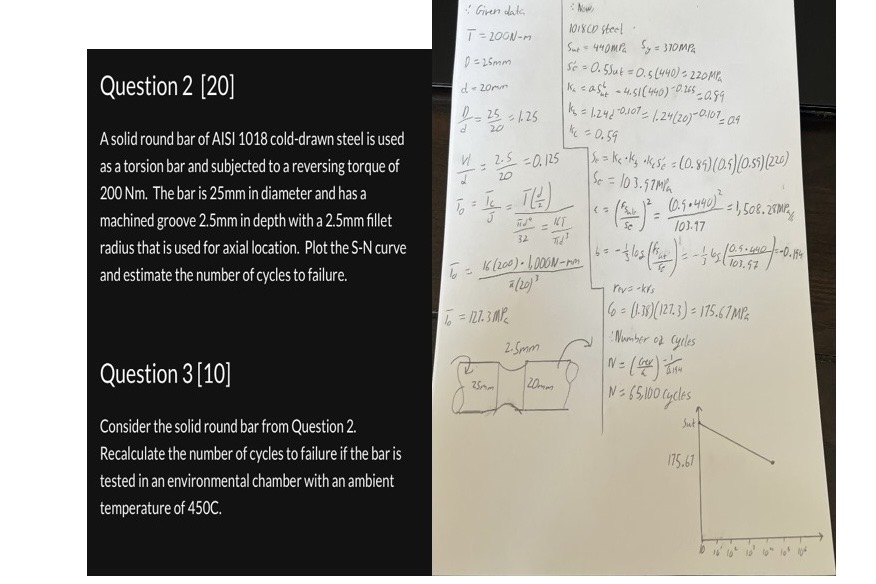 Question 2 [20]
A solid round bar of AISI 1018 cold-drawn steel is used
as a torsion bar and subjected to a reversing torque of
200 Nm. The bar is 25mm in diameter and has a
machined groove 2.5mm in depth with a 2.5mm fillet
radius that is used for axial location. Plot the S-N curve
and estimate the number of cycles to failure.
Question 3 [10]
Consider the solid round bar from Question 2.
Recalculate the number of cycles to failure if the bar is
tested in an environmental chamber with an ambient
temperature of 450C.
∴ Given data
T = 200N-m
D = 25mm
d = 20mm
D/d = 25/20 = 1.25
r/d = 2.5/20 = 0.125
τ₀ = Tc/J = T(d/2) / (πd⁴/32) = 16T/πd³
τ₀ = 16(200)·1,000N-mm / π(20)³
τ₀ = 127.3MPa
2.5mm
25mm
20mm
1018CD steel
Sut = 440MPa Sy = 370MPa
Se' = 0.5Sut = 0.5(440) = 220MPa
kb = 1.24d^-0.107 = 1.24(20)^-0.107 = 0.9
kc = 0.59
Se = 103.97MPa
= 1,508.28MPa
= (1.38)(127.3) = 175.67MPa
∴ Number of cycles
N = 65,100 cycles
Sut
175.67